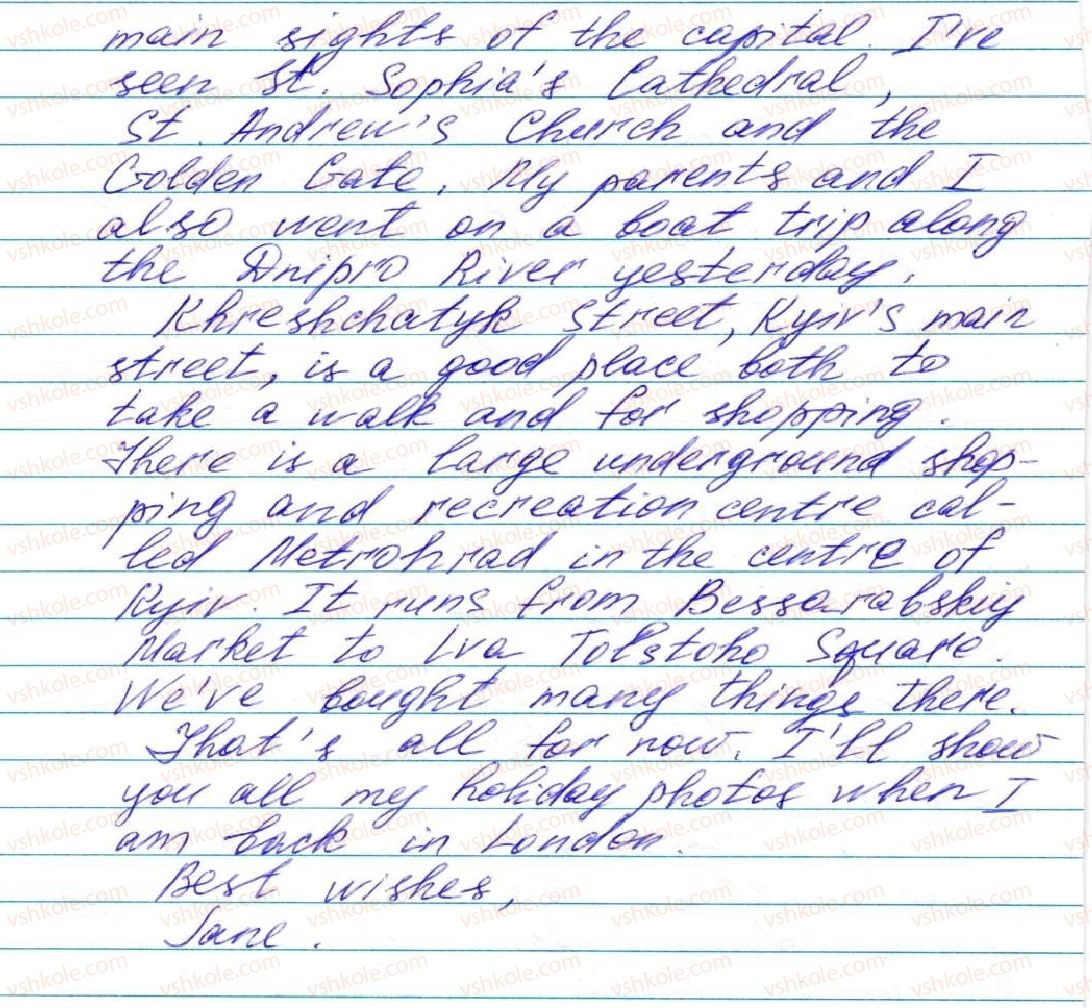 main sights of the capital. I've
seen St. Sophia's Cathedral,
St. Andrew's Church and the
Golden Gate. My parents and I
also went on a boat trip along
the Dnipro River yesterday.
Khreshchatyk Street, Kyiv's main
street, is a good place both to
take a walk and for shopping.
There is a large underground shop-
ping and recreation centre cal-
led Metrohrad in the centre of
Kyiv. It runs from Bessarabskiy
Market to Lva Tolstoho Square.
We've bought many things there.
That's all for now. I'll show
you all my holiday photos when I
am back in London.
Best wishes,
Jane.